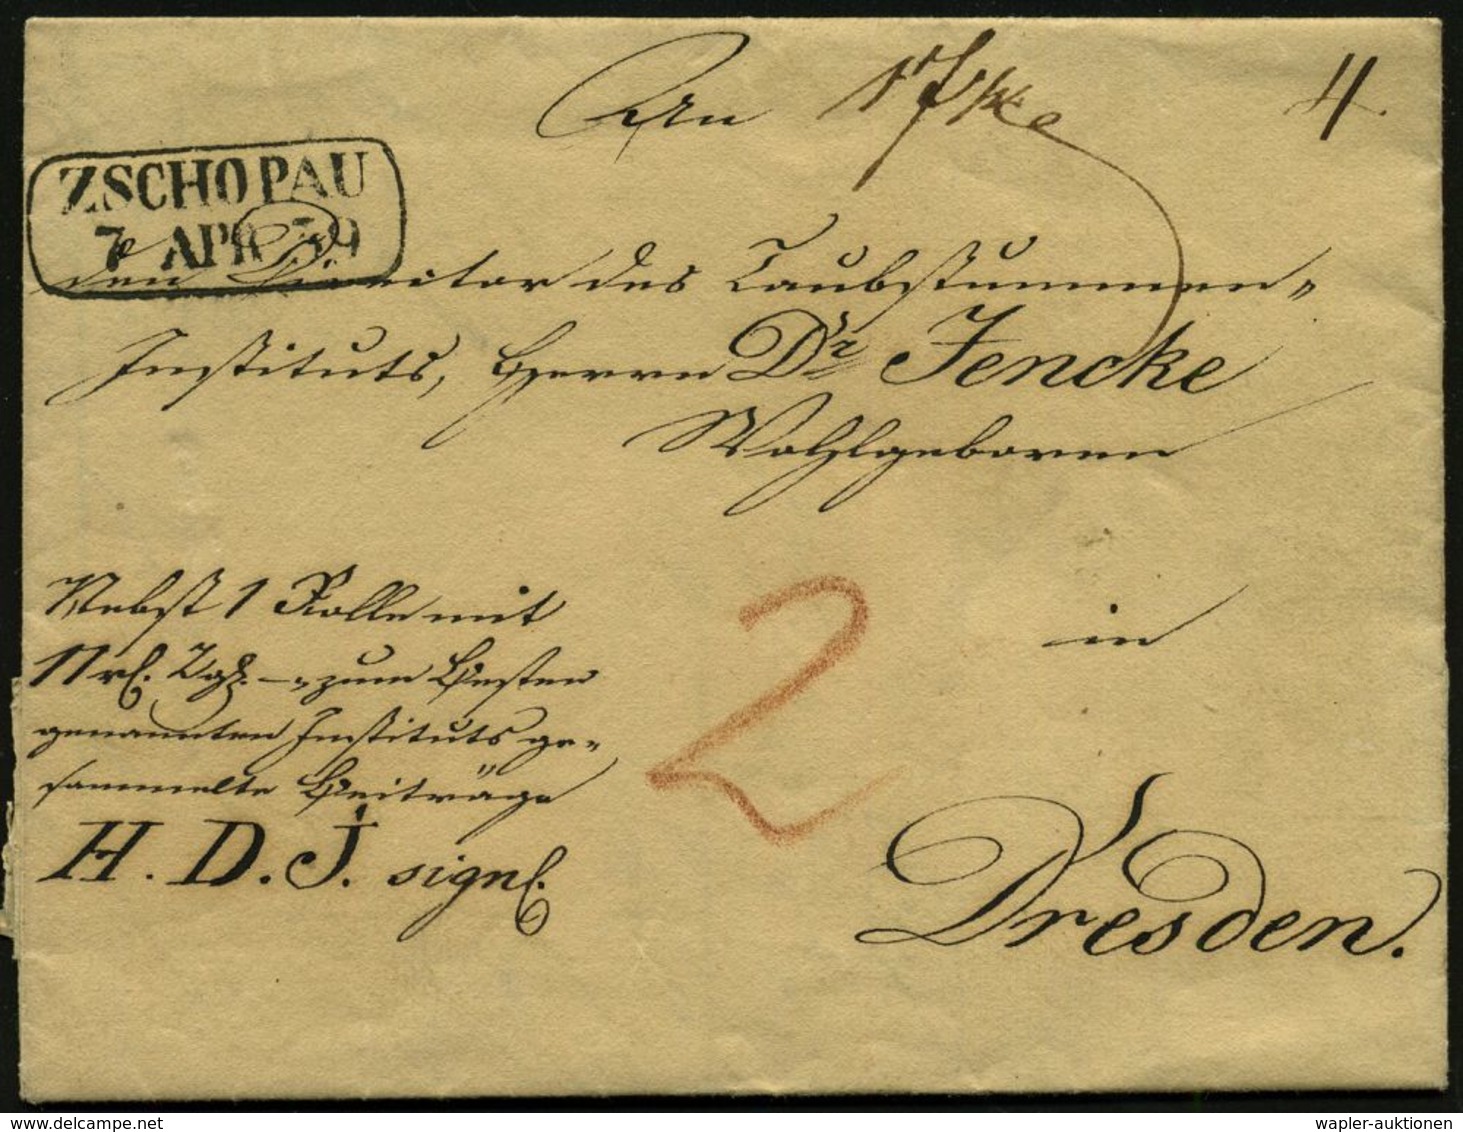 An
4.
ZSCHOPAU
7 APR 39
den Director des Taubstummen-
Instituts, Herrn Dr Jencke
Wohlgeboren
in
Dresden.
Nebst 1 Rolle mit
17 rl. – zum Besten
genannten Instituts ge-
sammelte Beiträge
H. D. J. signl.
2
wapler-auktionen